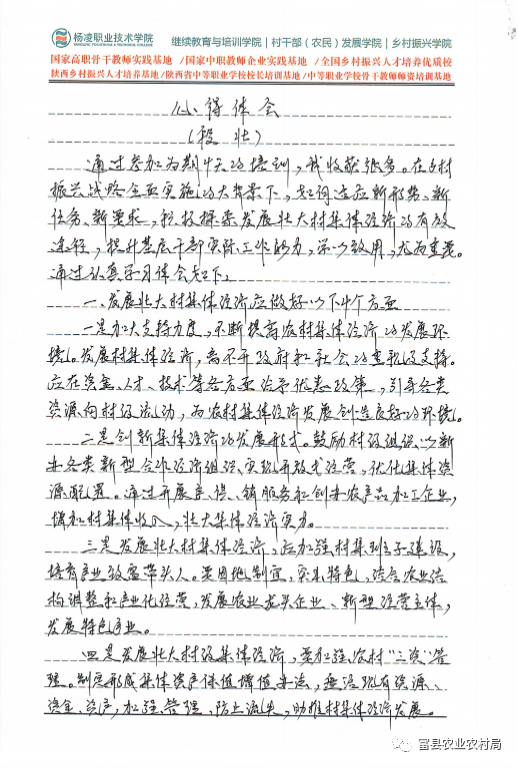 杨凌职业技术学院
YANGLING VOCATIONAL & TECHNICAL COLLEGE
继续教育与培训学院 | 村干部（农民）发展学院 | 乡村振兴学院
国家高职骨干教师实践基地 /国家中职教师企业实践基地 /全国乡村振兴人才培养优质校
陕西乡村振兴人才培养基地/陕西省中等职业学校校长培训基地/中等职业学校骨干教师师资培训基地
心得体会
（段壮）
通过参加为期4天的培训，我收获很多。在乡村
振兴战略全面实施的大背景下，如何适应新形势、新
任务、新要求，积极探索发展壮大村集体经济的有效
途径，提升基层干部实际工作能力，学以致用，尤为重要。
通过认真学习体会如下：
一、发展壮大村集体经济应做好以下4个方面
一是加大支持力度，不断提高农村集体经济的发展环
境。发展村集体经济，离不开政府和社会的重视及支持。
应在资金、人才、技术等各方面给予优惠政策，引导各类
资源向村级流动，为农村集体经济发展创造良好的环境。
二是创新集体经济的发展形式。鼓励村级组织以新
办各类新型合作经济组织、实现开放式经营，优化集体资
源配置。通过开展产、供、销服务和创办农产品加工企业，
增加村集体收入，壮大集体经济实力。
三是发展壮大村集体经济，应加强村集班子建设，
培育产业致富带头人。要因地制宜，突出特色，结合农业结
构调整和产业化经营，发展农业龙头企业、新型经营主体，
发展特色产业。
四是发展壮大村级集体经济，要加强农村“三资”管
理。制度形成集体资产保值增值办法，盘活现有资源、
资金、资产，加强管理，防止流失，助推村集体经济发展。
富县农业农村局